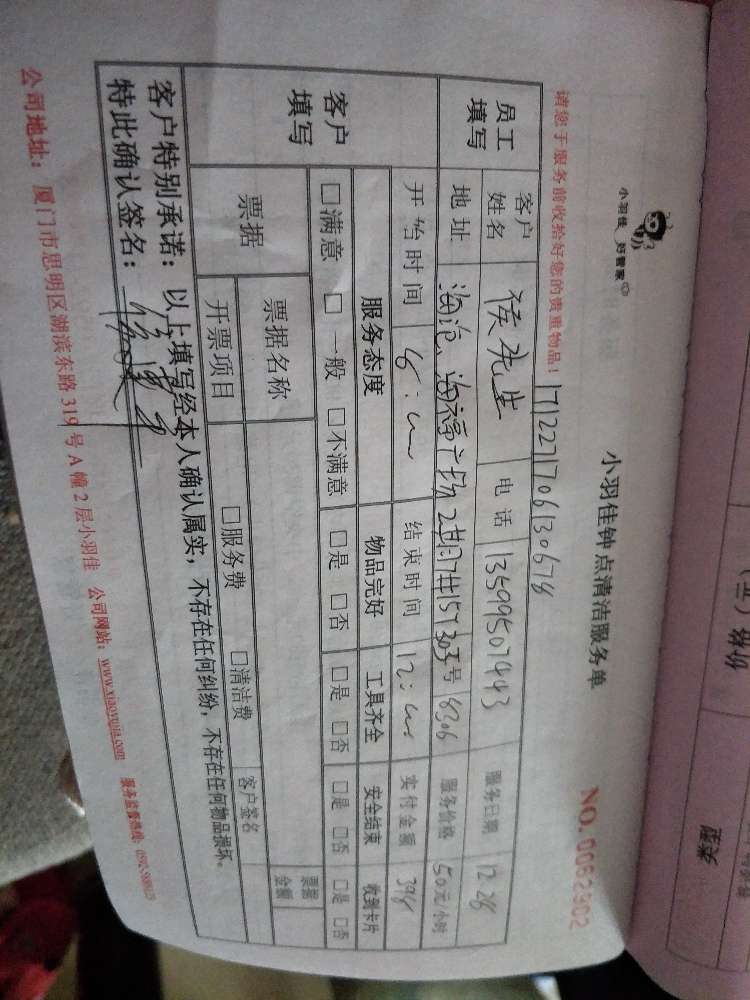 小羽佳 好管家
小羽佳钟点清洁服务单
NO. 0062902
请您于服务前收拾好您的贵重物品！
171227170613067​8
员工填写 客户姓名 侯先生 电话 13599507443 服务日期 12.28
地址 海沧 海福广场 303号 服务价格 50元/小时
开始时间 结束时间 实付金额 398
客户填写 服务态度 物品完好 工具齐全 安全结束 收到卡片
□满意 □一般 □不满意 □是 □否 □是 □否 □是 □否 □是 □否
票据 票据名称 票据金额
开票项目 □服务费 □清洁费 客户签名
客户特别承诺：以上填写经本人确认属实，不存在任何纠纷，不存在任何物品损坏。
特此确认签名：
公司地址：厦门市思明区湖滨东路319号A幢2层小羽佳 公司网站：www.xiaoyujia.com 服务监督热线：